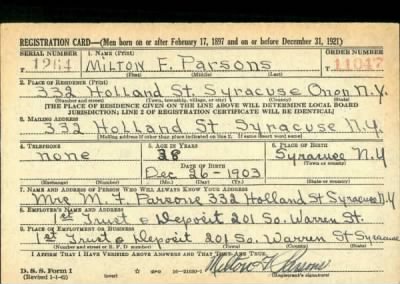 REGISTRATION CARD—(Men born on or after February 17, 1897 and on or before December 31, 1921)
SERIAL NUMBER 1. NAME (Print) ORDER NUMBER
1264 MILTON F. PARSONS 11047
(First) (Middle) (Last)
2. PLACE OF RESIDENCE (Print)
332 Holland St. Syracuse Onon N.Y.
(Number and street) (Town, township, village, or city) (County) (State)
[THE PLACE OF RESIDENCE GIVEN ON THE LINE ABOVE WILL DETERMINE LOCAL BOARD
JURISDICTION; LINE 2 OF REGISTRATION CERTIFICATE WILL BE IDENTICAL]
3. MAILING ADDRESS
332 Holland St. Syracuse N.Y.
[Mailing address if other than place indicated on line 2. If same insert word same]
4. TELEPHONE 5. AGE IN YEARS 6. PLACE OF BIRTH
none 38 Syracuse N.Y
DATE OF BIRTH (Town or county)
Dec 26-1903
(Exchange) (Number) (Mo.) (Day) (Yr.) (State or country)
7. NAME AND ADDRESS OF PERSON WHO WILL ALWAYS KNOW YOUR ADDRESS
Mrs M. F. Parsons 332 Holland St Syracuse N.Y
8. EMPLOYER'S NAME AND ADDRESS
1st Trust & Deposit 201 So. Warren St.
9. PLACE OF EMPLOYMENT OR BUSINESS
1st Trust & Deposit 201 So. Warren St Syracuse
(Number and street or R. F. D. number) (Town) (County) (State)
I AFFIRM THAT I HAVE VERIFIED ABOVE ANSWERS AND THAT THEY ARE TRUE.
D. S. S. Form 1 Milton F. Parsons
(Revised 1-1-42)